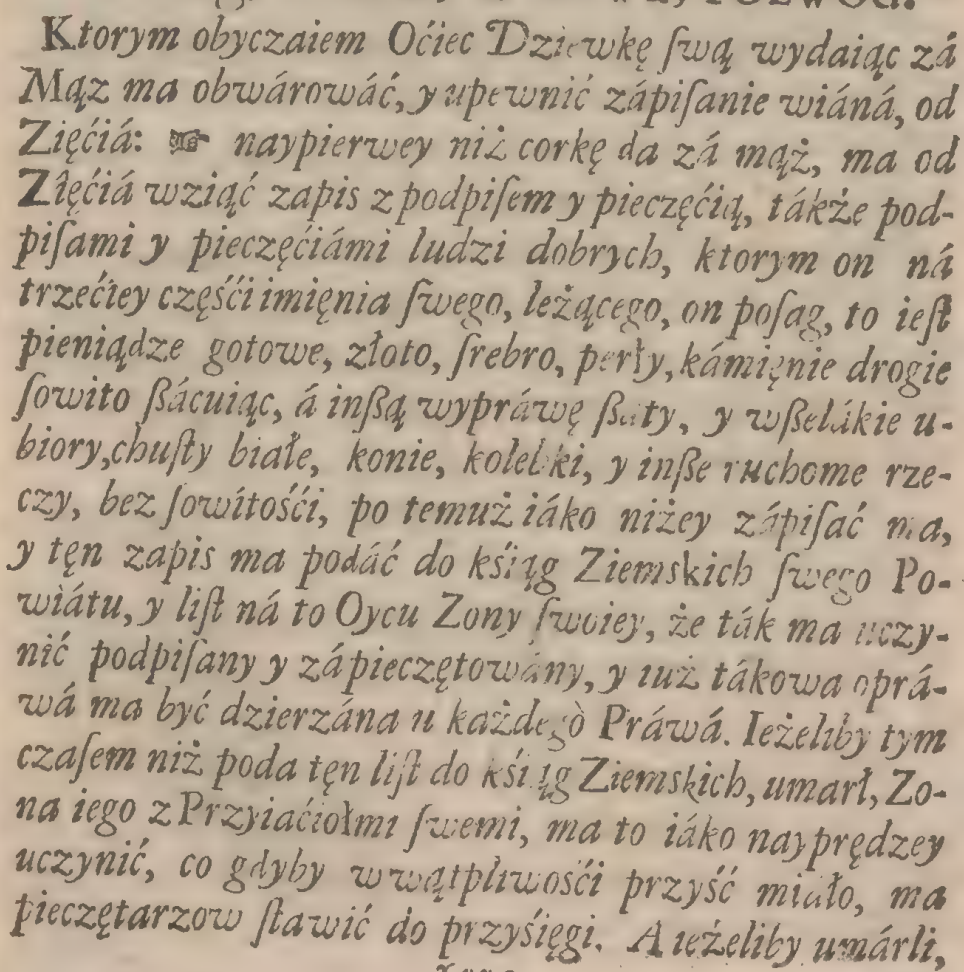 Ktorym obyczaiem Oćiec Dziewkę ſwą wydaiąc zá
Mąz ma obwárowáć, y upewnić zápiſanie wiáná, od
Zięćiá: ☞ naypierwey niż corkę da zá mąż, ma od
Zięćiá wziąć zapis z podpiſem y pieczęćią, tákże pod-
piſami y pieczęćiámi ludzi dobrych, ktorym on ná
trzećiey częśći imięnia ſwego, leżącego, on poſag, to ieſt
pieniądze gotowe, złoto, ſrebro, perły, kámięnie drogie
ſowito ßácuiąc, á inßą wypráwę ßaty, y wßelákie u-
biory, chuſty białe, konie, kolebki, y inße ruchome rze-
czy, bez ſowitośći, po temuż iáko niżey zápiſać ma,
y tęn zapis ma podáć do kśiąg Ziemskich ſwego Po-
wiátu, y liſt ná to Oycu Zony ſwoiey, że ták ma uczy-
nić podpiſany y zápieczętowány, y iuż tákowa oprá-
wá ma być dzierzána u każdegò Práwá. Ieżeliby tym
czaſem niż poda tęn liſt do kśiąg Ziemskich, umarł, Zo-
na iego z Przyiaćiołmi ſwemi, ma to iáko nayprędzey
uczynić, co gdyby w wątpliwośći przyść miáło, ma
pieczętarzow ſtawić do przyśięgi. A ieżeliby umárli,